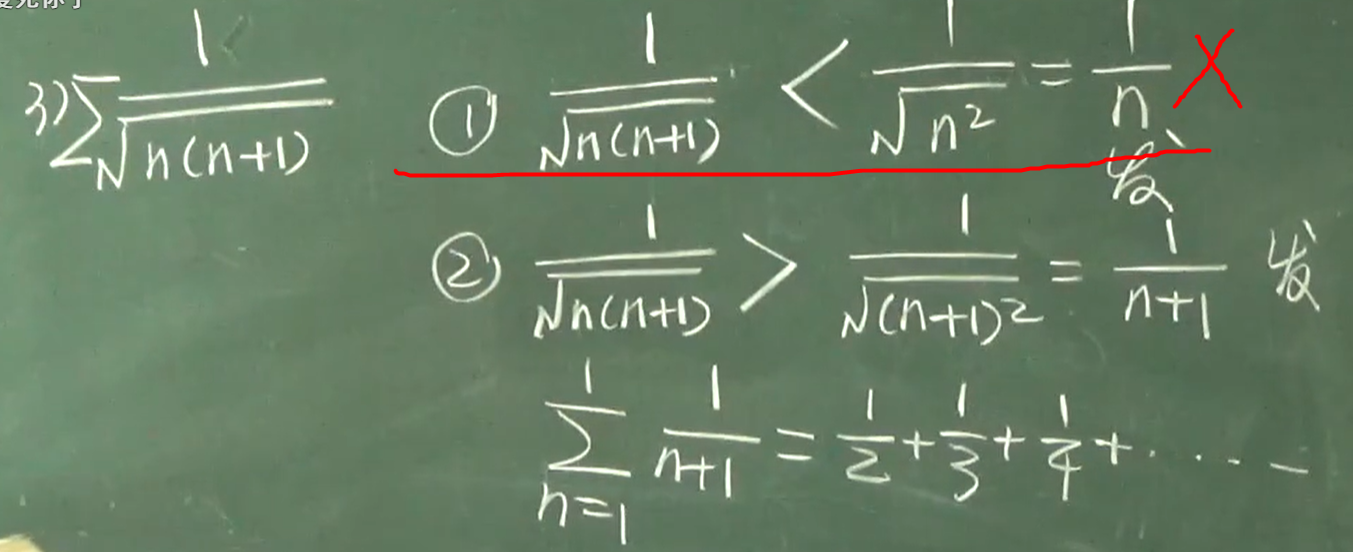 3) ∑ 1/√(n(n+1)) ① 1/√(n(n+1)) < 1/√(n²) = 1/n ×
发
② 1/√(n(n+1)) > 1/√((n+1)²) = 1/(n+1) 发
1∑n=1 1/(n+1) = 1/2 + 1/3 + 1/4 + ······ –